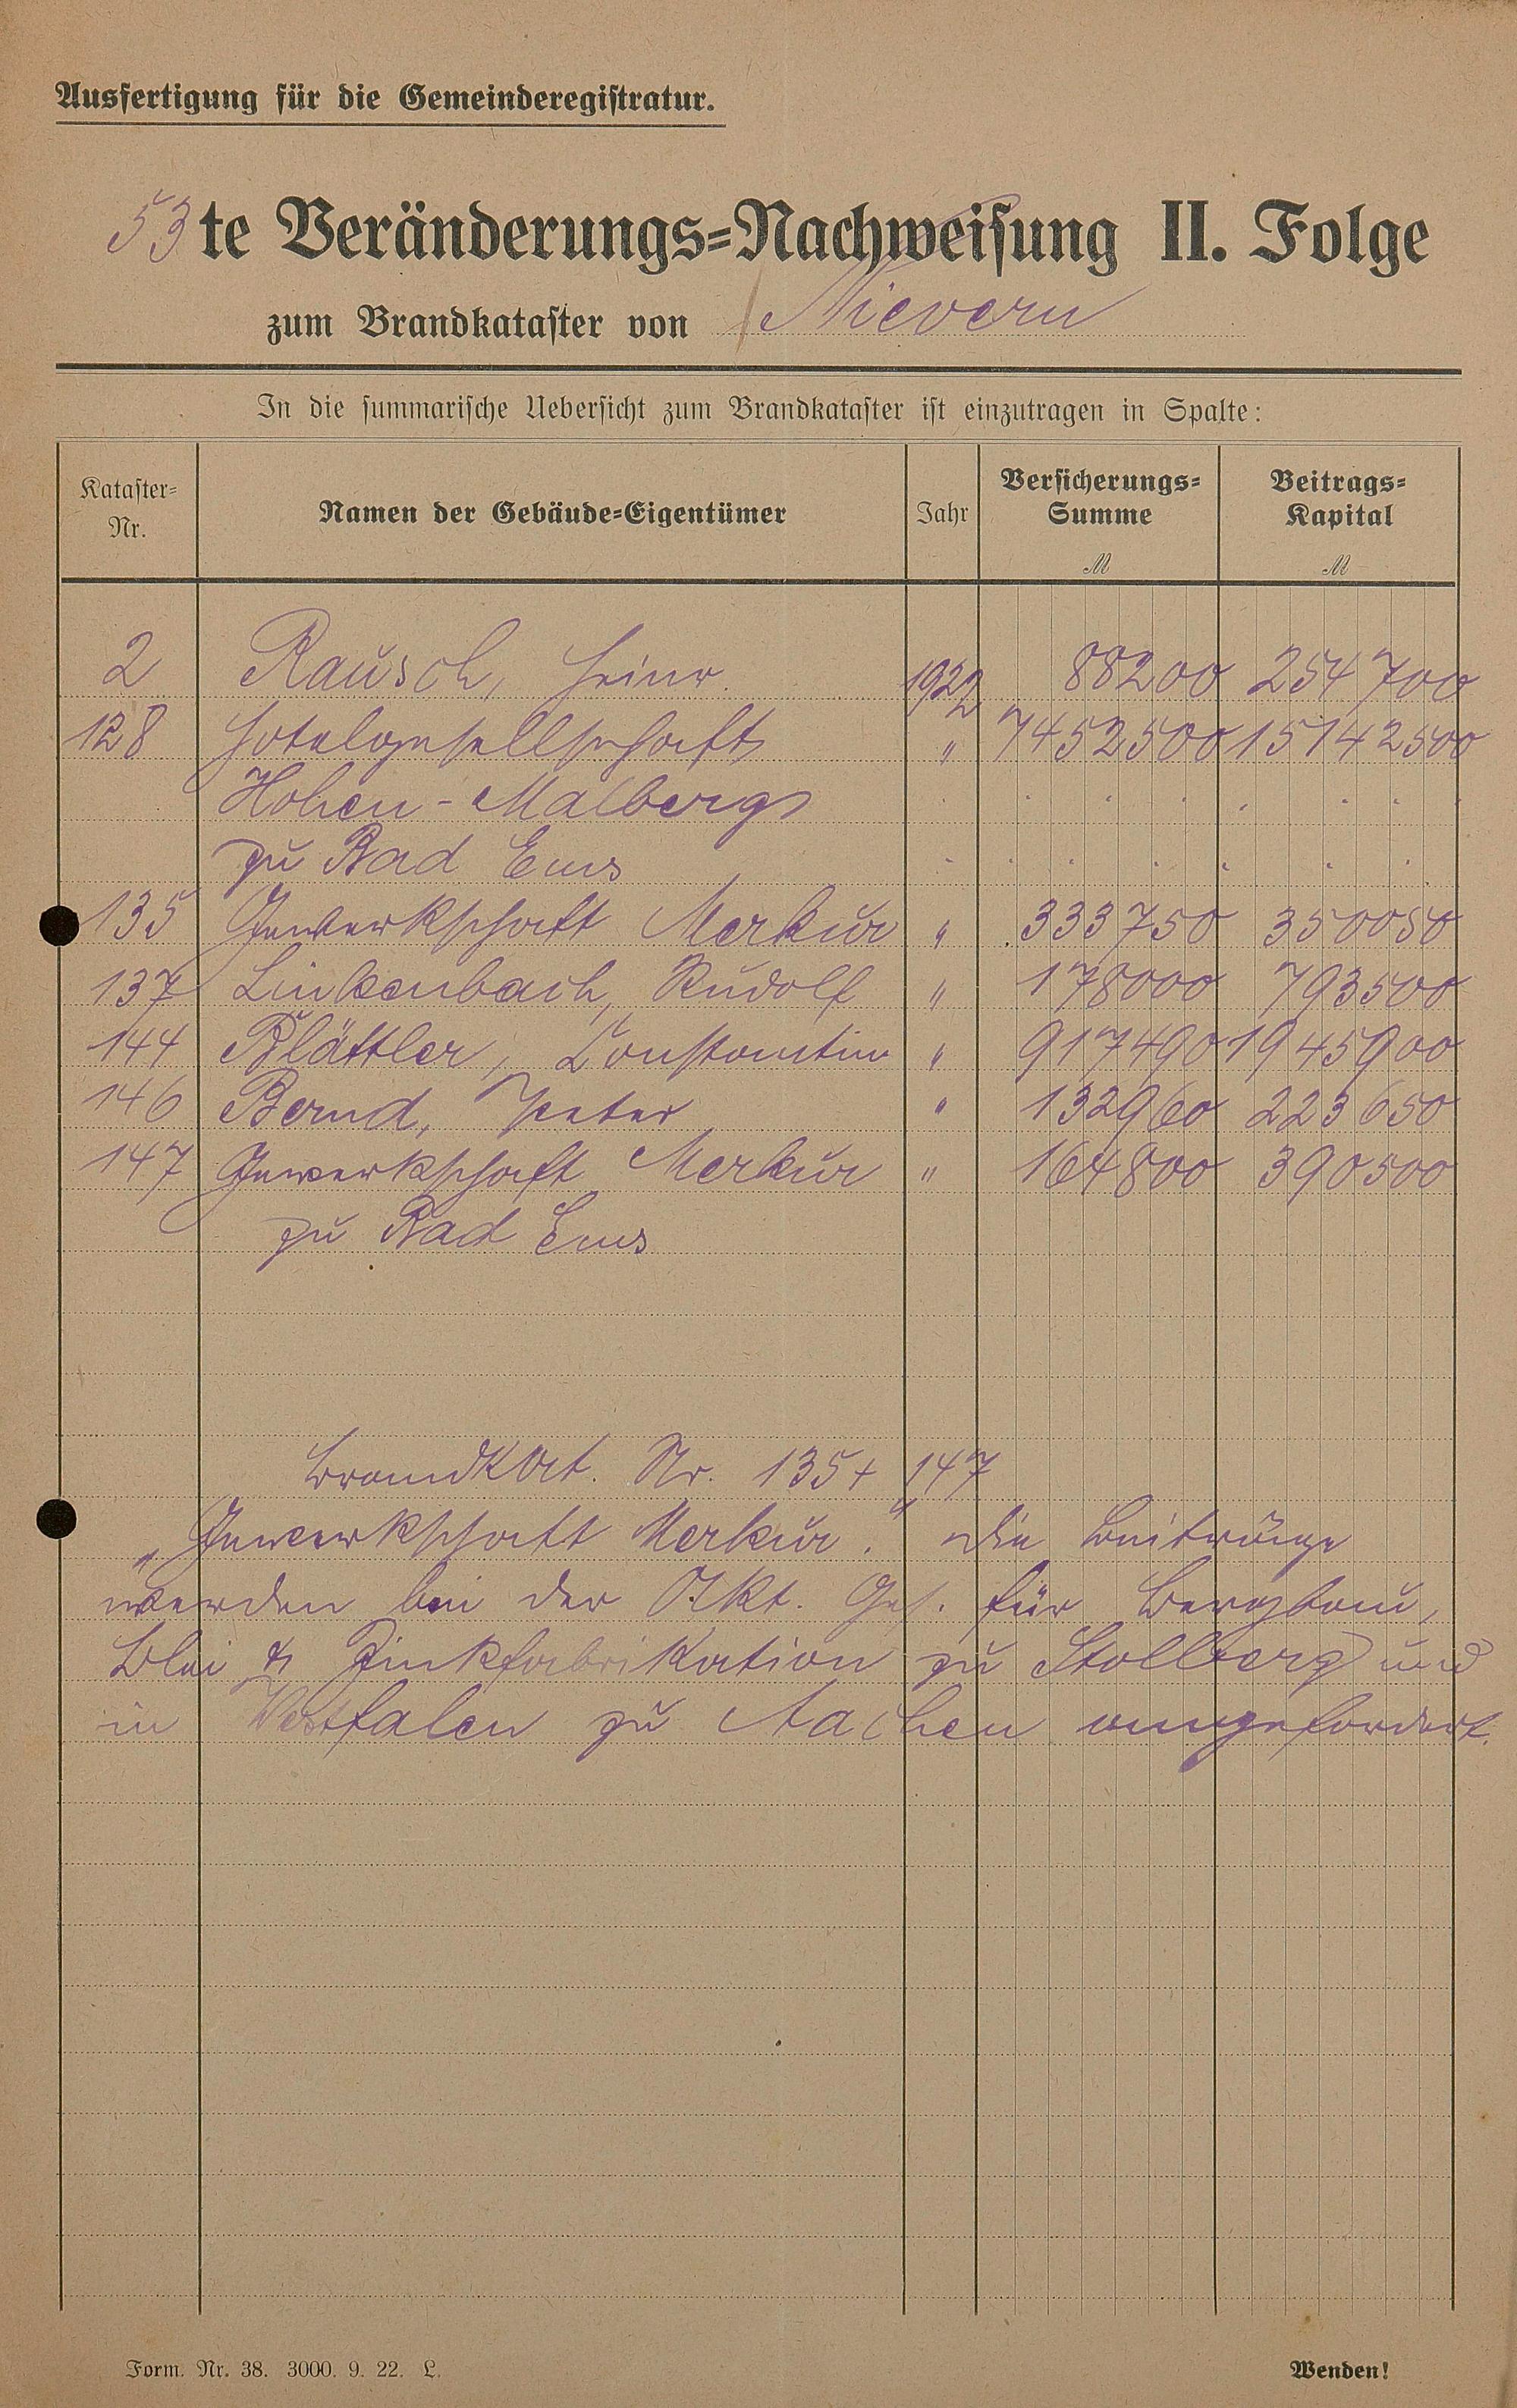 Ausfertigung für die Gemeinderegistratur.
53te Veränderungs-Nachweisung II. Folge
zum Brandkataster von Nievern
In die summarische Uebersicht zum Brandkataster ist einzutragen in Spalte:
Kataster-Nr. Namen der Gebäude-Eigentümer Jahr Versicherungs-Summe M Beitrags-Kapital M
2 Rausch, Heinr. 1922 88200 254700
128 Hotelgesellschaft " 7452500 15142500
Hohen-Malberg
zu Bad Ems
135 Gewerkschaft Merkur " 333750 350050
137 Linkenbach, Rudolf " 178000 793500
144 Blättler, Constantin " 917490 1945900
146 Bernd, Peter " 132960 223650
147 Gewerkschaft Merkur " 164800 390500
zu Bad Ems
Brandkat. Nr. 135 + 147
„Gewerkschaft Merkur." Die Beiträge
werden bei der Akt. Ges. für Bergbau,
Blei & Zinkfabrikation zu Stollberg und
in Westfalen zu Aachen angefordert.
Form. Nr. 38. 3000. 9. 22. L.
Wenden!